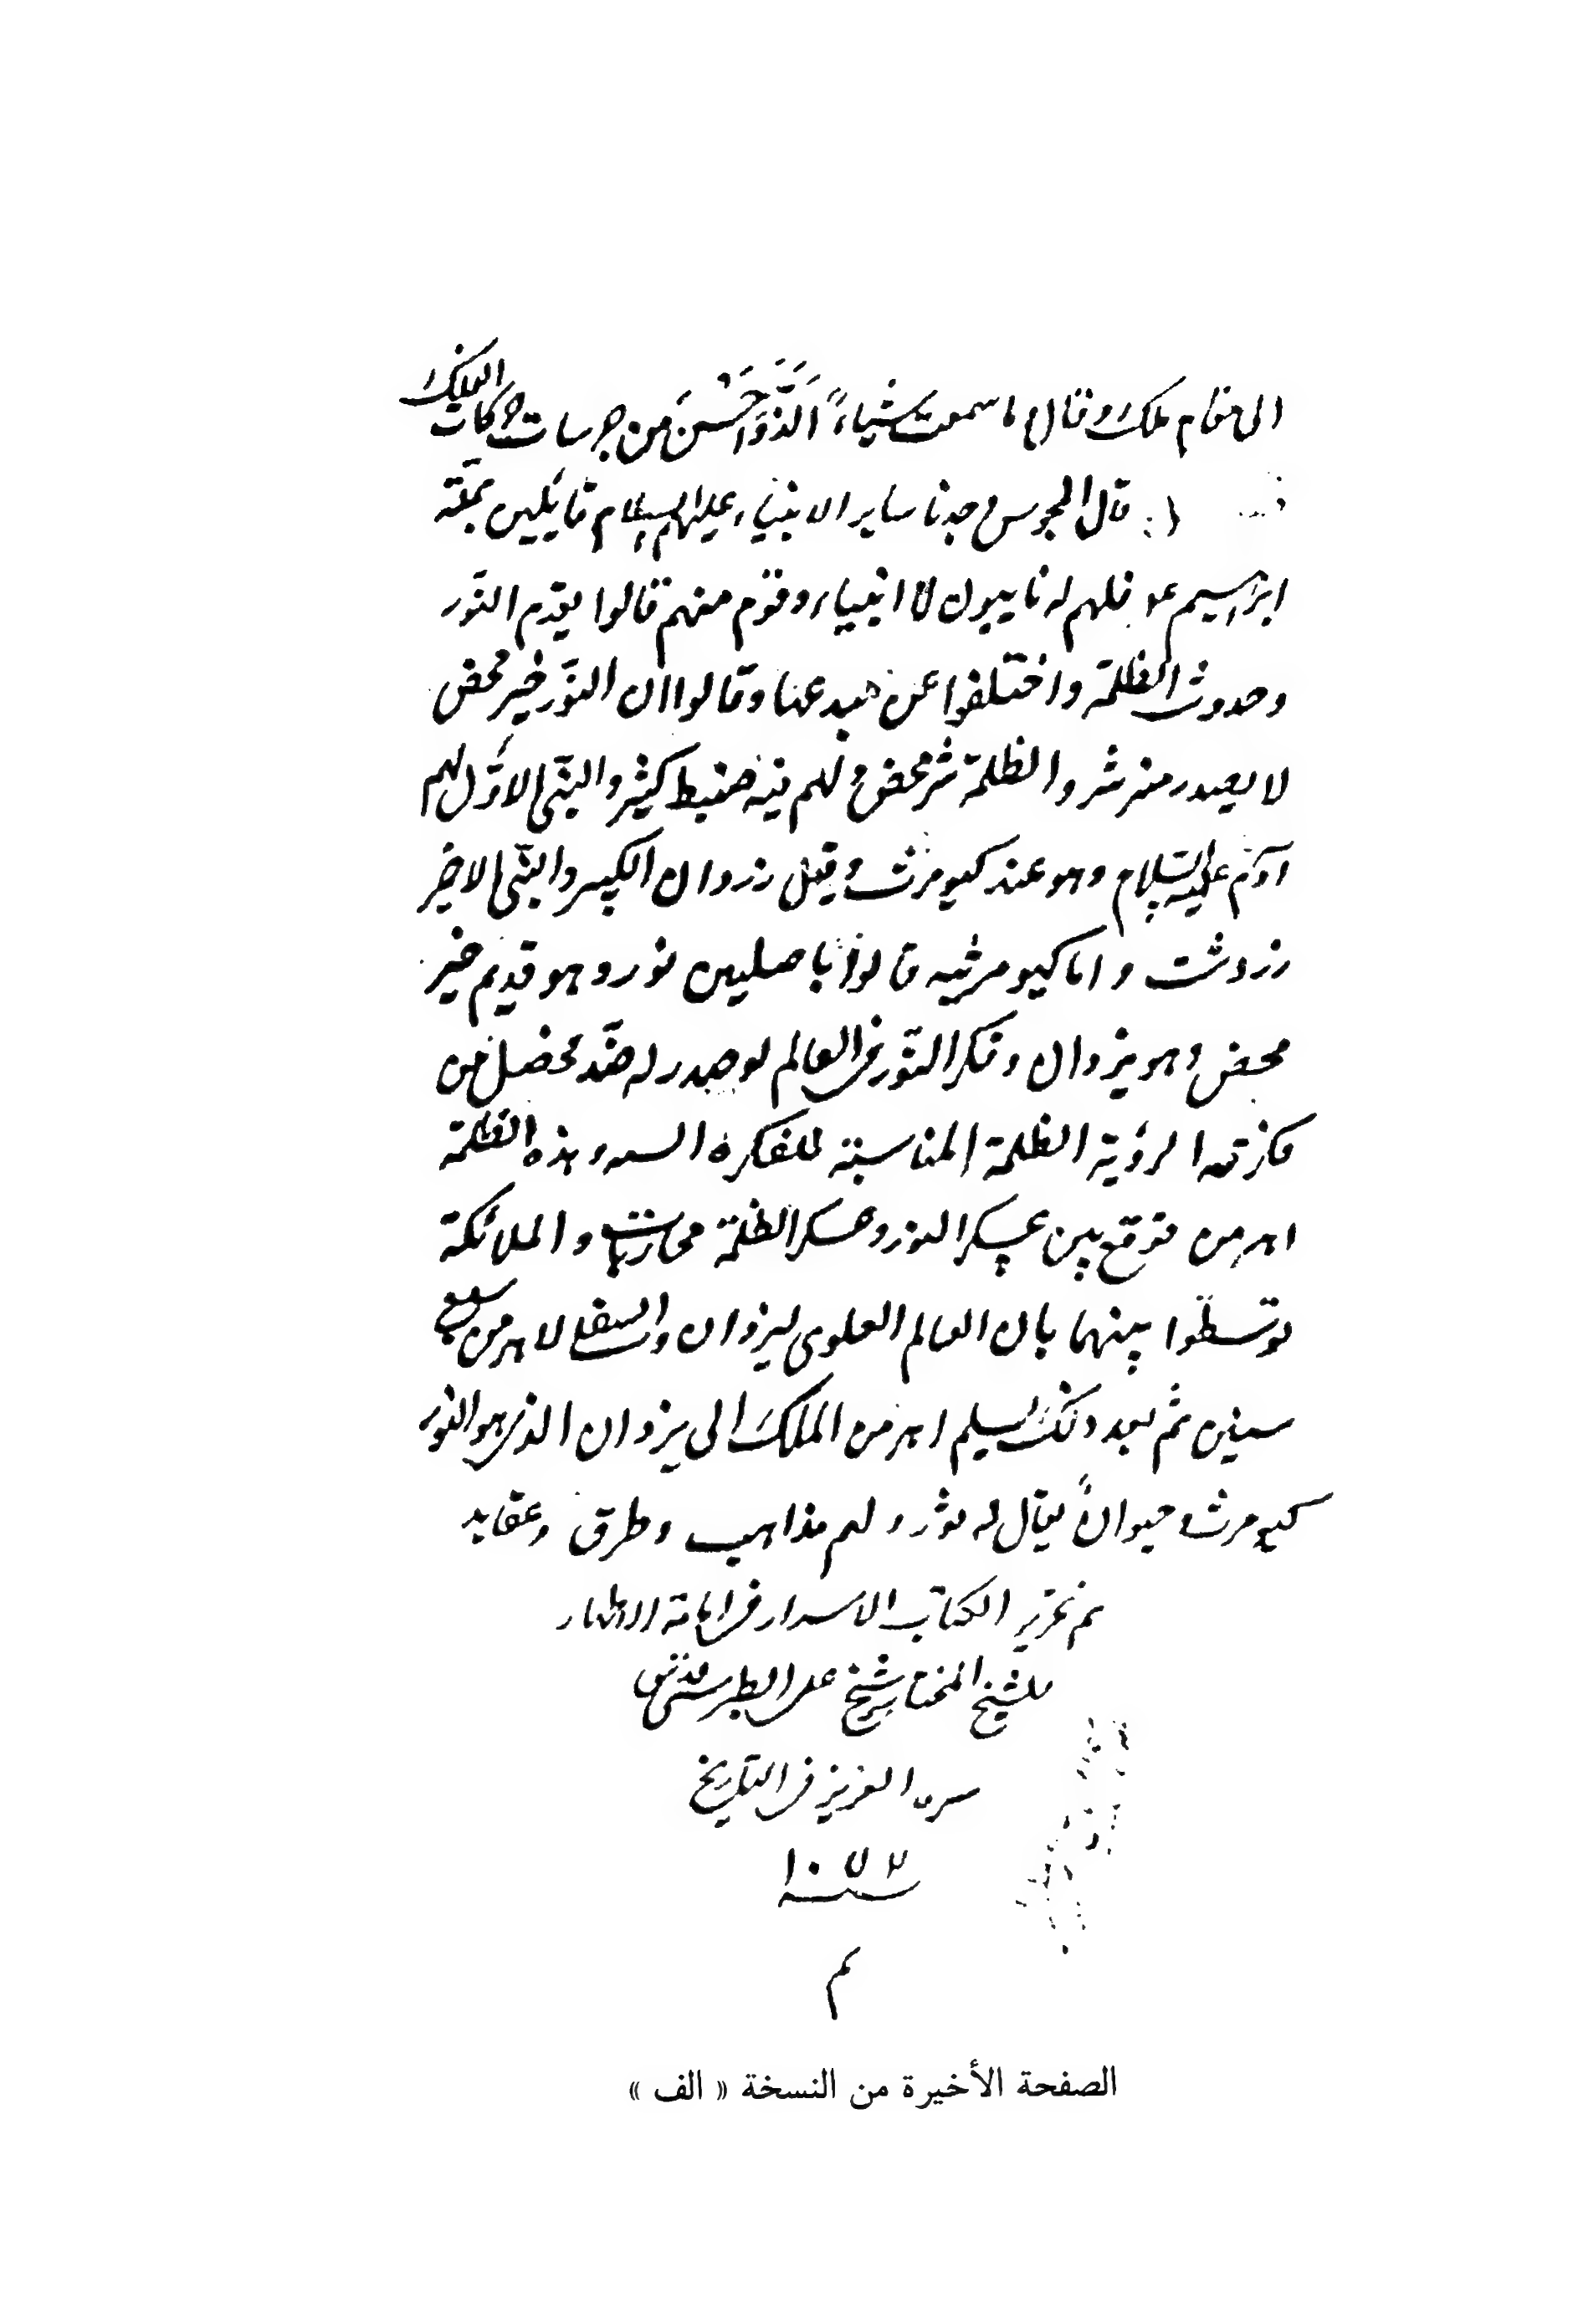 الى مقام ملك وقال ما سمعت شياءً اَلَذَّ وَاَحْسَنَ من جرسات حركات الفلك
قال المجوس وجدنا ساير الانبياء عليهم السلام قايلين بملّة
ابراهيم ع فلهم له نايبون لا انبياء وقوم منهم قالوا بقدم النّور
وحدوث الظلمة واختلفوا عن مبدعها وقالوا ان النوّر خير محض
لا يصدر منه شر والظلمة شر محض ولهم فيه ضبط كثير والنبّى الاوّل لهم
آدم عليه السّلام وهو عند كيومرث وقيل زروان الكبير والنبّى الاخير
زردشت واما كيومرثيه قالوا باصلين نور وهو قديم خير
محض وهو يزدان وفكر النّور فى العالم لو صدر له ضدّ فحصل من
فكرته الرؤية الظلمة المناسبة للفكره السوء وهذه الظلمة
اهرمن فوقع بين عسكر النور وعسكر الظلمة محاربات والملائكة
توسطّوا بينهما بان العالم العلوى ليزدان والسفلى لاهرمن سبع
سنين ثم بعد ذلك يسلم اهرمن الملك الى يزدان الذى هو النور
كيومرث وحيواناً يقال له ثور ولهم مذاهب وطرق وعقايد
تم تحرير الكتاب الاسرار فى امامة الاطهار
للشيخ المختار شيخ على الطبرسى قدّس
سره العزيز فى التاريخ
سنه ١٠٧٣
م
الصفحة الأخيرة من النسخة « الف »